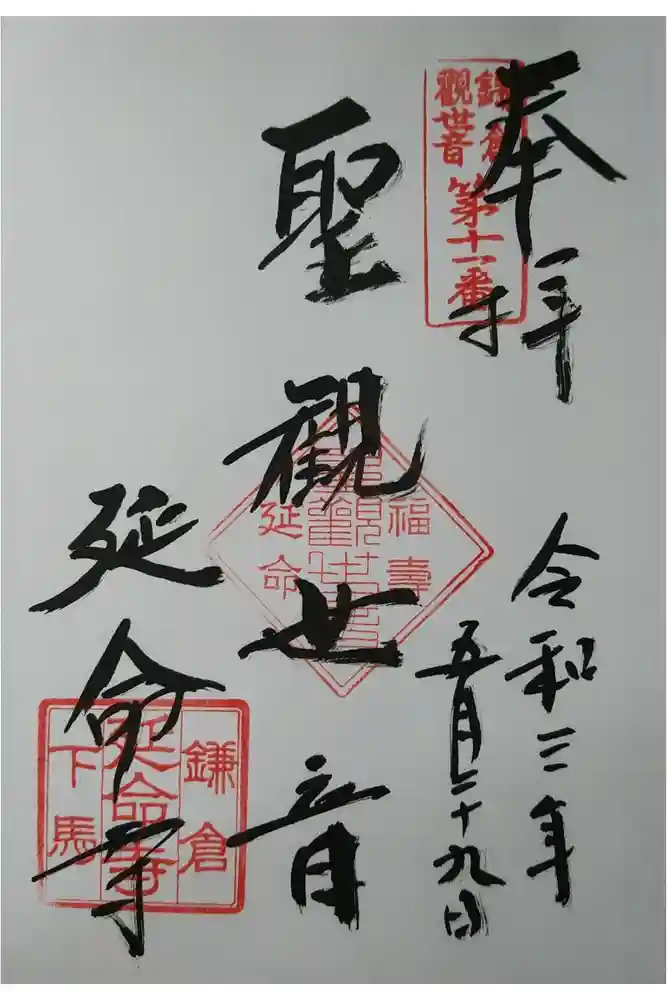 奉拝
鎌倉
觀世音
第十一番
令和三年
五月二十九日
聖觀世音
福壽
聖觀世音
延命
延命寺
鎌倉
延命寺
下馬